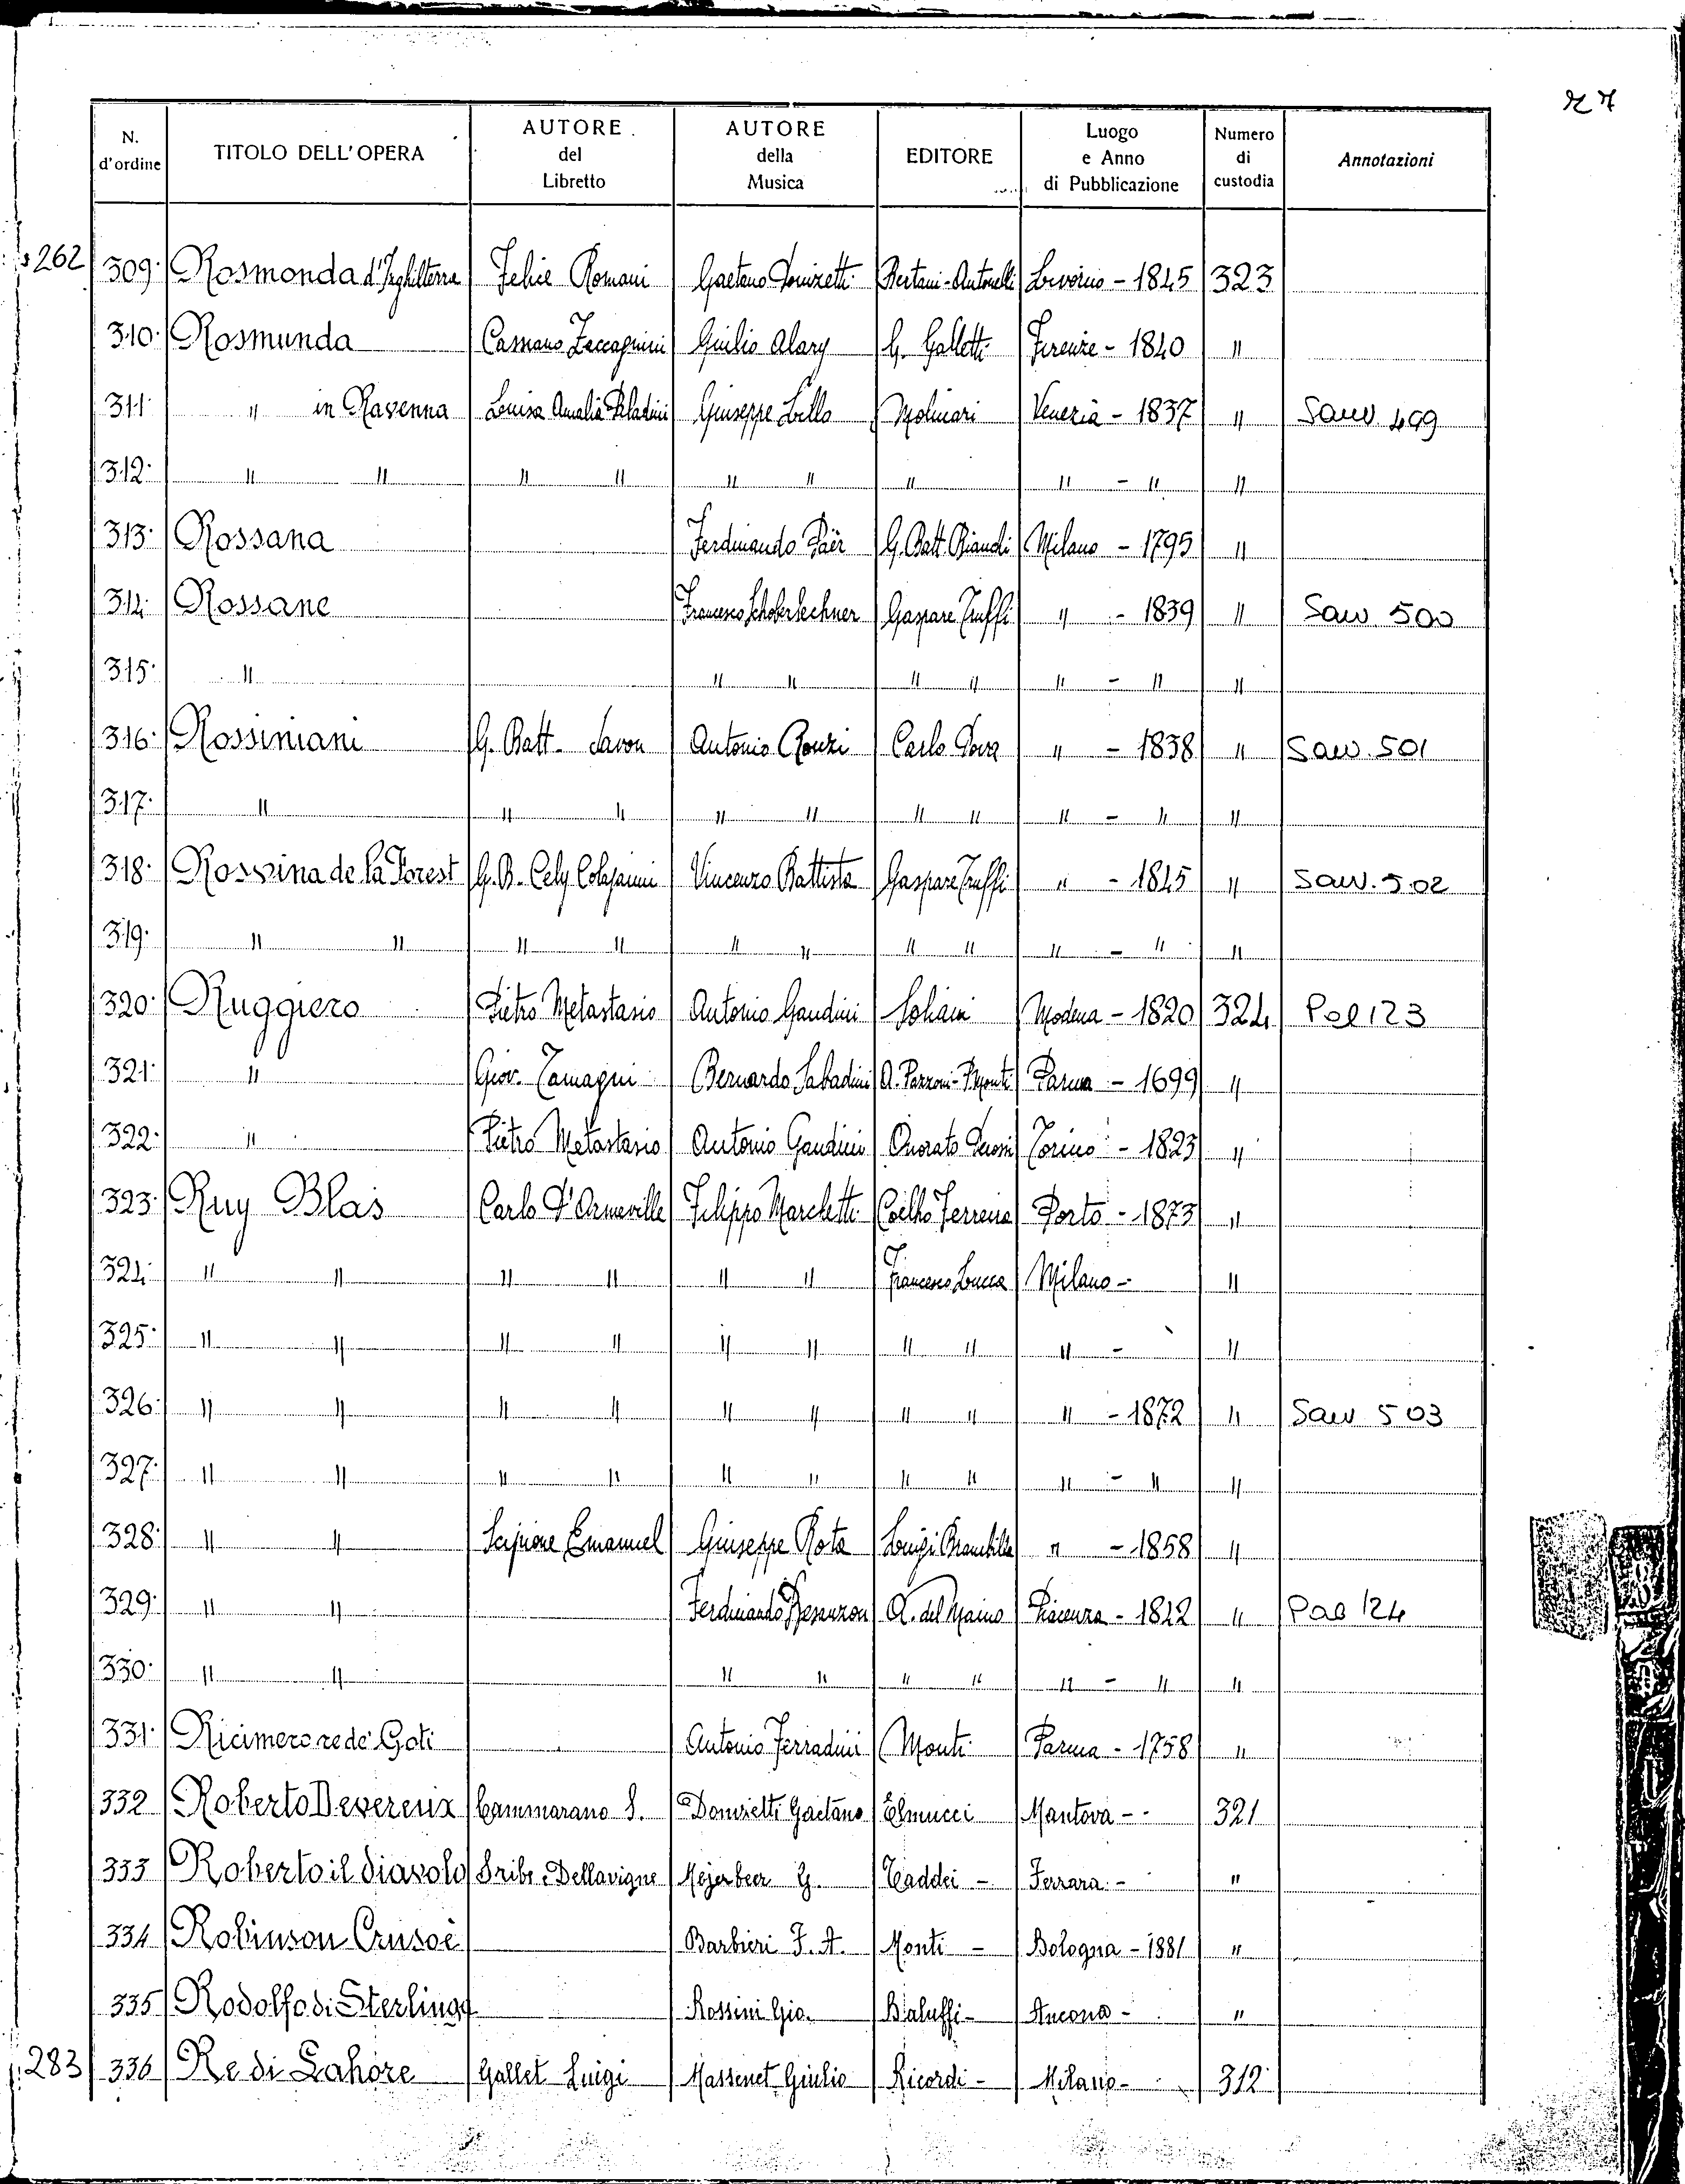 27
N. d'ordine TITOLO DELL'OPERA AUTORE del Libretto AUTORE della Musica EDITORE Luogo e Anno di Pubblicazione Numero di custodia Annotazioni
262 309 Rosmonda d'Inghilterra Felice Romani Gaetano Donizetti Bertani-Antonelli Livorno - 1845 323
310 Rosmunda Cassiano Zaccagnini Giulio Alary G. Galletti Firenze - 1840 "
311 " in Ravenna Luisa Amalia Paladini Giuseppe Lillo Molinari Venezia - 1837 " Sauv. 499
312 " " " " " " " " - " "
313 Rossana Ferdinando Paër G. Batt. Bianchi Milano - 1795 "
314 Rossane Francesco Schoberlechner Gaspare Truffi " - 1839 " Sauv. 500
315 " " " " " " - " "
316 Rossiniani G. Batt. Savon Antonio Ronzi Carlo Dova " - 1838 " Sauv. 501
317 " " " " " " " " - " "
318 Rossina de la Forest G. B. Cely Colajanni Vincenzo Battista Gaspare Truffi " - 1845 " Sauv. 502
319 " " " " " " " " " - " "
320 Ruggiero Pietro Metastasio Antonio Gandini Soliani Modena - 1820 324 Pal 123
321 " Giov. Tamagni Bernardo Sabadini A. Pazzoni-Monti Parma - 1699 "
322 " Pietro Metastasio Antonio Gandini Onorato Derossi Torino - 1823 "
323 Ruy Blas Carlo D'Ormeville Filippo Marchetti Coelho Ferreira Porto - 1873 "
324 " " " " " " Francesco Lucca Milano - "
325 " " " " " " " " " - "
326 " " " " " " " " " - 1872 " Sauv 503
327 " " " " " " " " " - " "
328 " " Scipione Emanuel Giuseppe Rota Luigi Brambilla " - 1858 "
329 " " Ferdinando Besanzon A. del Maino Piacenza - 1842 " Pas 124
330 " " " " " " " - " "
331 Ricimero re de' Goti Antonio Ferradini Monti Parma - 1758 "
332 Roberto Devereux Cammarano S. Donizetti Gaetano Elmucci Mantova - - 321
333 Roberto il diavolo Sribe-Dellavigne Mejerbeer G. Taddei - Ferrara - "
334 Robinson Crusoè Barbieri F. A. Monti - Bologna - 1881 "
335 Rodolfo di Sterlinga Rossini Gio. Baluffi - Ancona - "
283 336 Re di Lahore Gallet Luigi Massenet Giulio Ricordi - Milano - 312